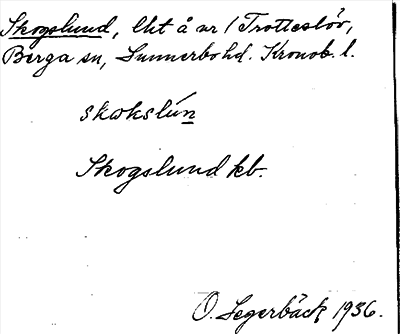 Skogslund, lht å nr 1 Trotteslöv,
Berga sn, Sunnerbo hd. Kronob. l.
skωkslún
Skogslund kb.
O. Segerbäck 1936.